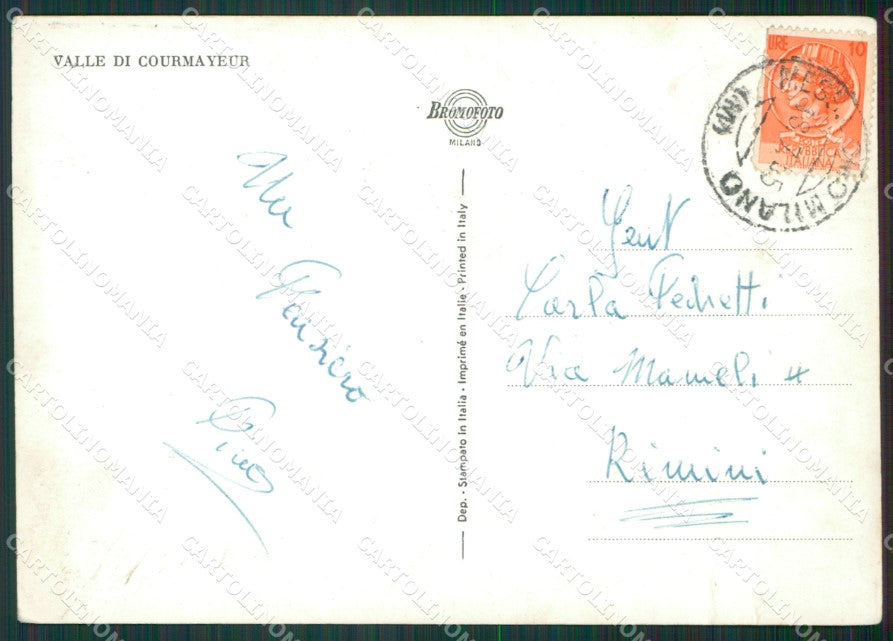 VALLE DI COURMAYEUR
BROMOFOTO
MILANO
LIRE 10
REPUBBLICA
ITALIANA
MILANO
Un
Pensiero
Pino
Dep. - Stampato in Italia - Imprimé en Italie - Printed in Italy
Gent
Carla Pedretti
Via Mameli 4
Rimini
CARTOLINOMANIA